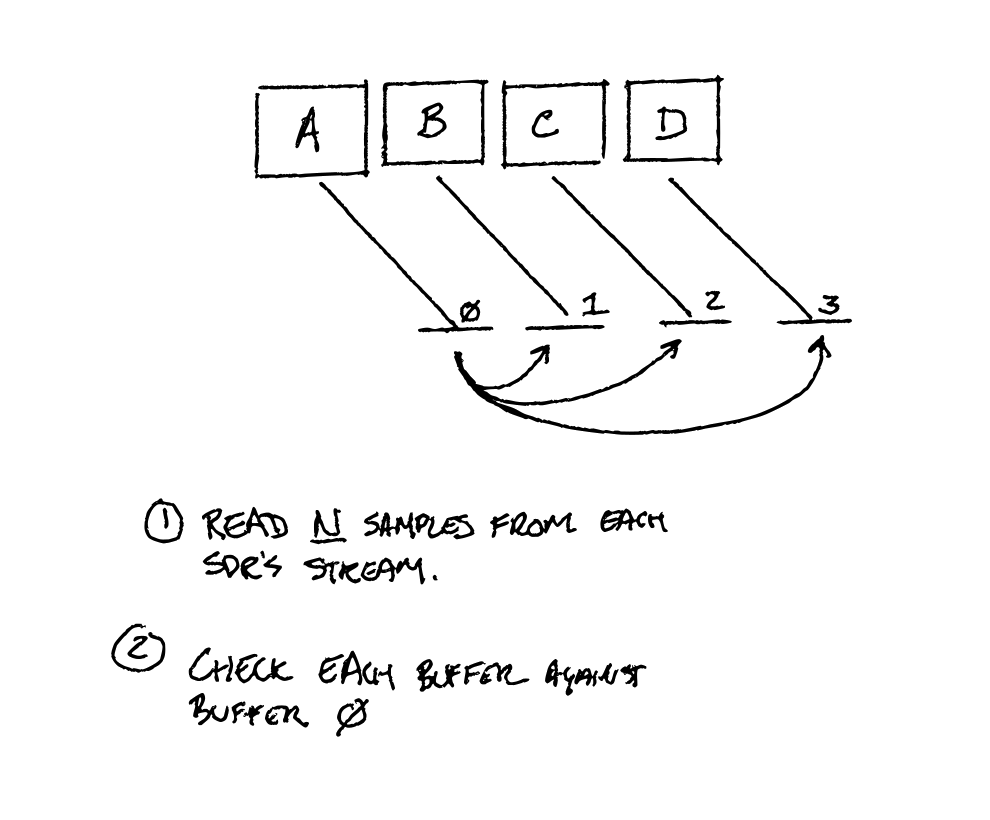 A B C D
Ø 1 2 3
① READ N SAMPLES FROM EACH
SDR'S STREAM.
② CHECK EACH BUFFER AGAINST
BUFFER Ø